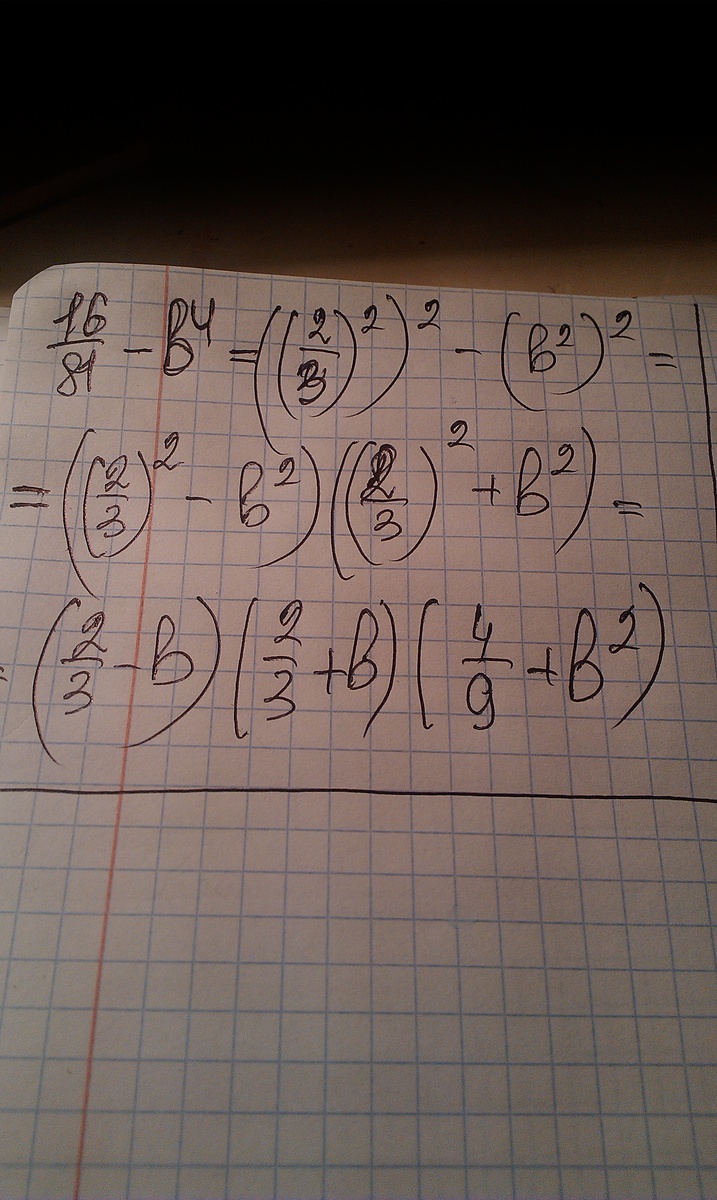 16/81 - b⁴ = ((2/3)²)² - (b²)² =
= ((2/3)² - b²)((2/3)² + b²) =
= (2/3 - b)(2/3 + b)(4/9 + b²)